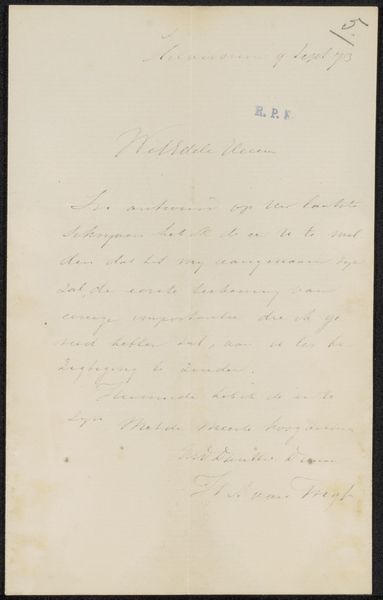 5.
Hilversum 9 Sept 73
R. P. K.
WelEdele Heer
In antwoord op Uw laatste
schrijven heb ik de eer U te mel
den dat het my aangenaam zyn
zal, de eerste teekening van
eenige importantie die ik ge
reed hebben zal, aan U ter be
zigtiging te zenden.
Hiermede heb ik de eer te
zyn Met de meeste hoogachting
UEd Dienstw. Dienaar
van